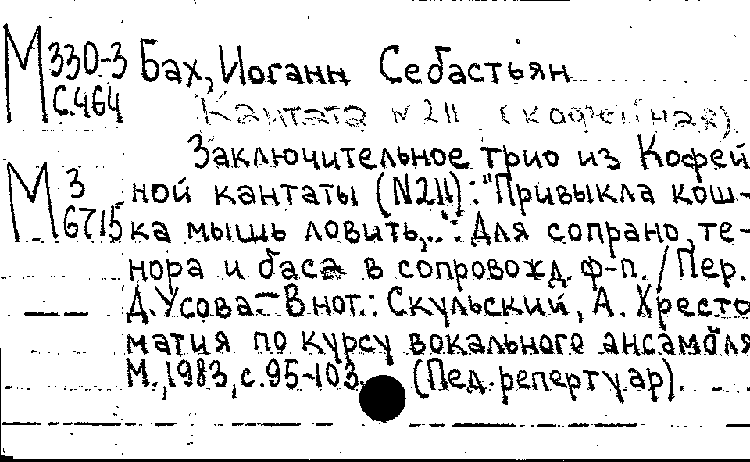 М 330-3 Бах, Иоганн Себастьян
С.464
Кантата №211 (кофейная).
Заключительное трио из Кофей
М 3 ной кантаты (N211): "Привыкла кош-
6715 ка мышь ловить,..". Для сопрано, те-
нора и баса в сопровожд. ф-п. / Пер.
Д.Усова.– В нот.: Скульский, А. Хресто
матия по курсу вокального ансамбля
М., 1983, с.95-103. (Пед. репертуар).